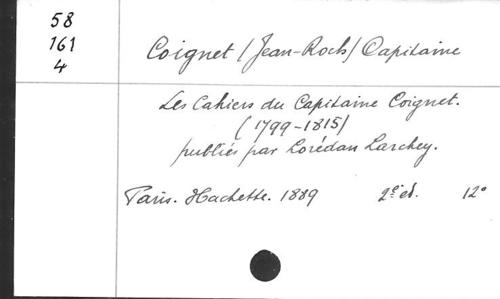 58
161
4
Coignet (Jean-Roch) Capitaine
Les Cahiers du Capitaine Coignet.
(1799-1815)
publiés par Lorédan Larchey.
Paris. Hachette. 1889 2e ed. 12°